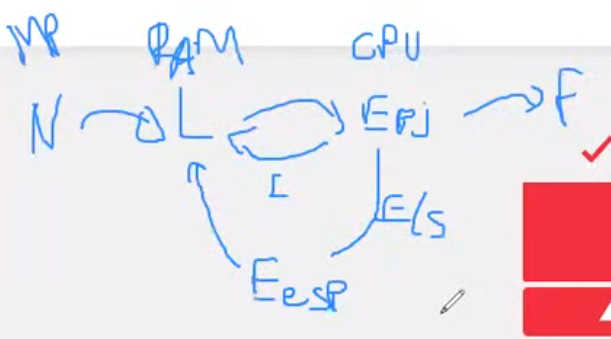 MP RAM CPU
N L Eej F
I
E/S
Eesp